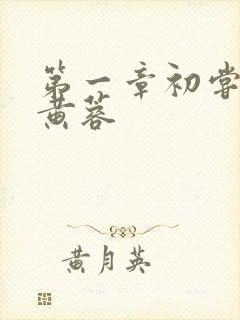 第一章初尝
黄蓉
黄月英